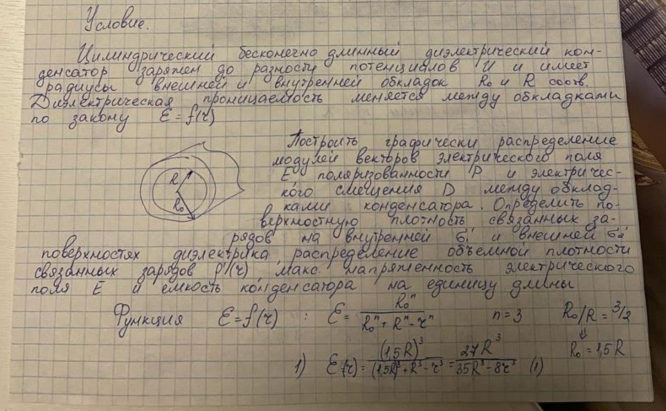 Условие.
Цилиндрический бесконечно длинный диэлектрический кон-
денсатор заряжен до разности потенциалов U и имеет
радиусы внешней и внутренней обкладок R₀ и R соотв.
Диэлектрическая проницаемость меняется между обкладками
по закону ε = f(r)
Построить графически распределение
модулей векторов электрического поля
E, поляризованности P и электричес-
кого смещения D между обклад-
ками конденсатора. Определить по-
верхностную плотность связанных за-
рядов на внутренней σᵢ' и внешней σₑ'
поверхностях диэлектрика, распределение объемной плотности
связанных зарядов ρ'(r), макс. напряженность электрического
поля E и ёмкость конденсатора на единицу длины
R
R₀
Функция ε = f(r) : ε = R₀ⁿ / (R₀ⁿ + Rⁿ - rⁿ) n = 3 R₀/R = 3/2
⇓
R₀ = 1,5R
1) ε(r) = (1,5R)³ / ((1,5R)³ + R³ - r³) = 27R³ / (35R³ - 8r³) (1)